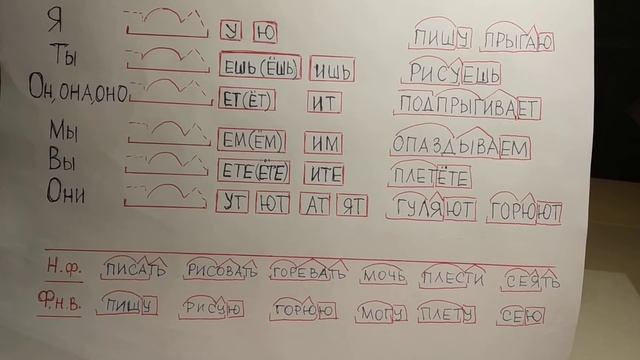 Я У Ю ПИШУ ПРЫГАЮ
Ты ЕШЬ(ЁШЬ) ИШЬ РИСУЕШЬ
Он, она, оно ЕТ(ЁТ) ИТ ПОДПРЫГИВАЕТ
Мы ЕМ(ЁМ) ИМ ОПАЗДЫВАЕМ
Вы ЕТЕ(ЁТЕ) ИТЕ ПЛЕТЁТЕ
Они УТ ЮТ АТ ЯТ ГУЛЯЮТ ГОРЮЮТ
Н.ф. ПИСАТЬ РИСОВАТЬ ГОРЕВАТЬ МОЧЬ ПЛЕСТИ СЕЯТЬ
Ф.н.в. ПИШУ РИСУЮ ГОРЮЮ МОГУ ПЛЕТУ СЕЮ